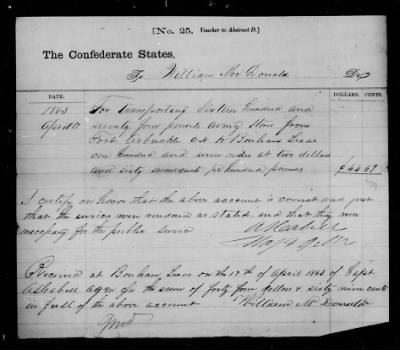 [No. 25. Voucher to Abstract D.]
The Confederate States,
To William Mc Donald Dr.
DATE. DOLLARS. CENTS.
1863 For transporting Sixteen hundred and
April 17 seventy four pounds Army Stores from
Fort Arbuckle C.N. to Bonham Texas
one hundred and seven miles at two dollars
and sixty seven cents pr hundred pounds 44 69
I certify on honor that the above account is correct and just
that the services were rendered as stated, and that they were
necessary for the public service
Maj & QM
Received at Bonham, Texas on the 17th of April 1863 of Capt
the sum of forty four dollars & sixty nine cents
in full of the above account William McDonald